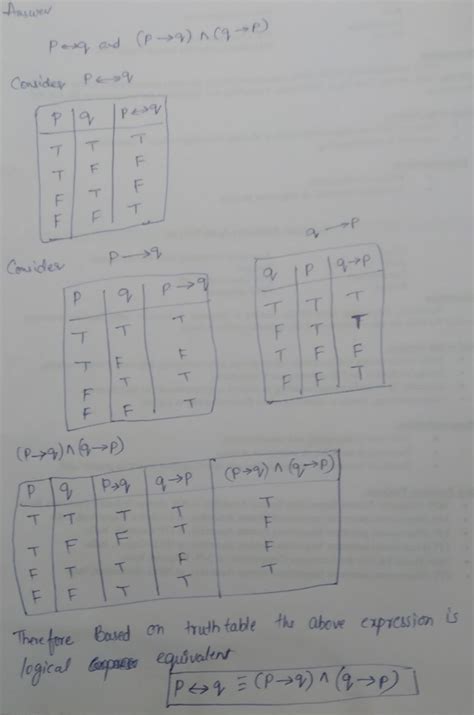 Answer
P↔q and (P→q) ∧ (q→P)
Consider P↔q
P q P↔q
T T T
T F F
F T F
F F T
Consider P→q
q→P
P q P→q
T T T
T F F
F T T
F F T
q P q→P
T T T
F T T
T F F
F F T
(P→q)∧(q→P)
P q P→q q→P (P→q)∧(q→P)
T T T T T
T F F T F
F T T F F
F F T T T
Therefore Based on truthtable the above expression is
logical equivalent
P↔q ≡ (P→q) ∧ (q→P)